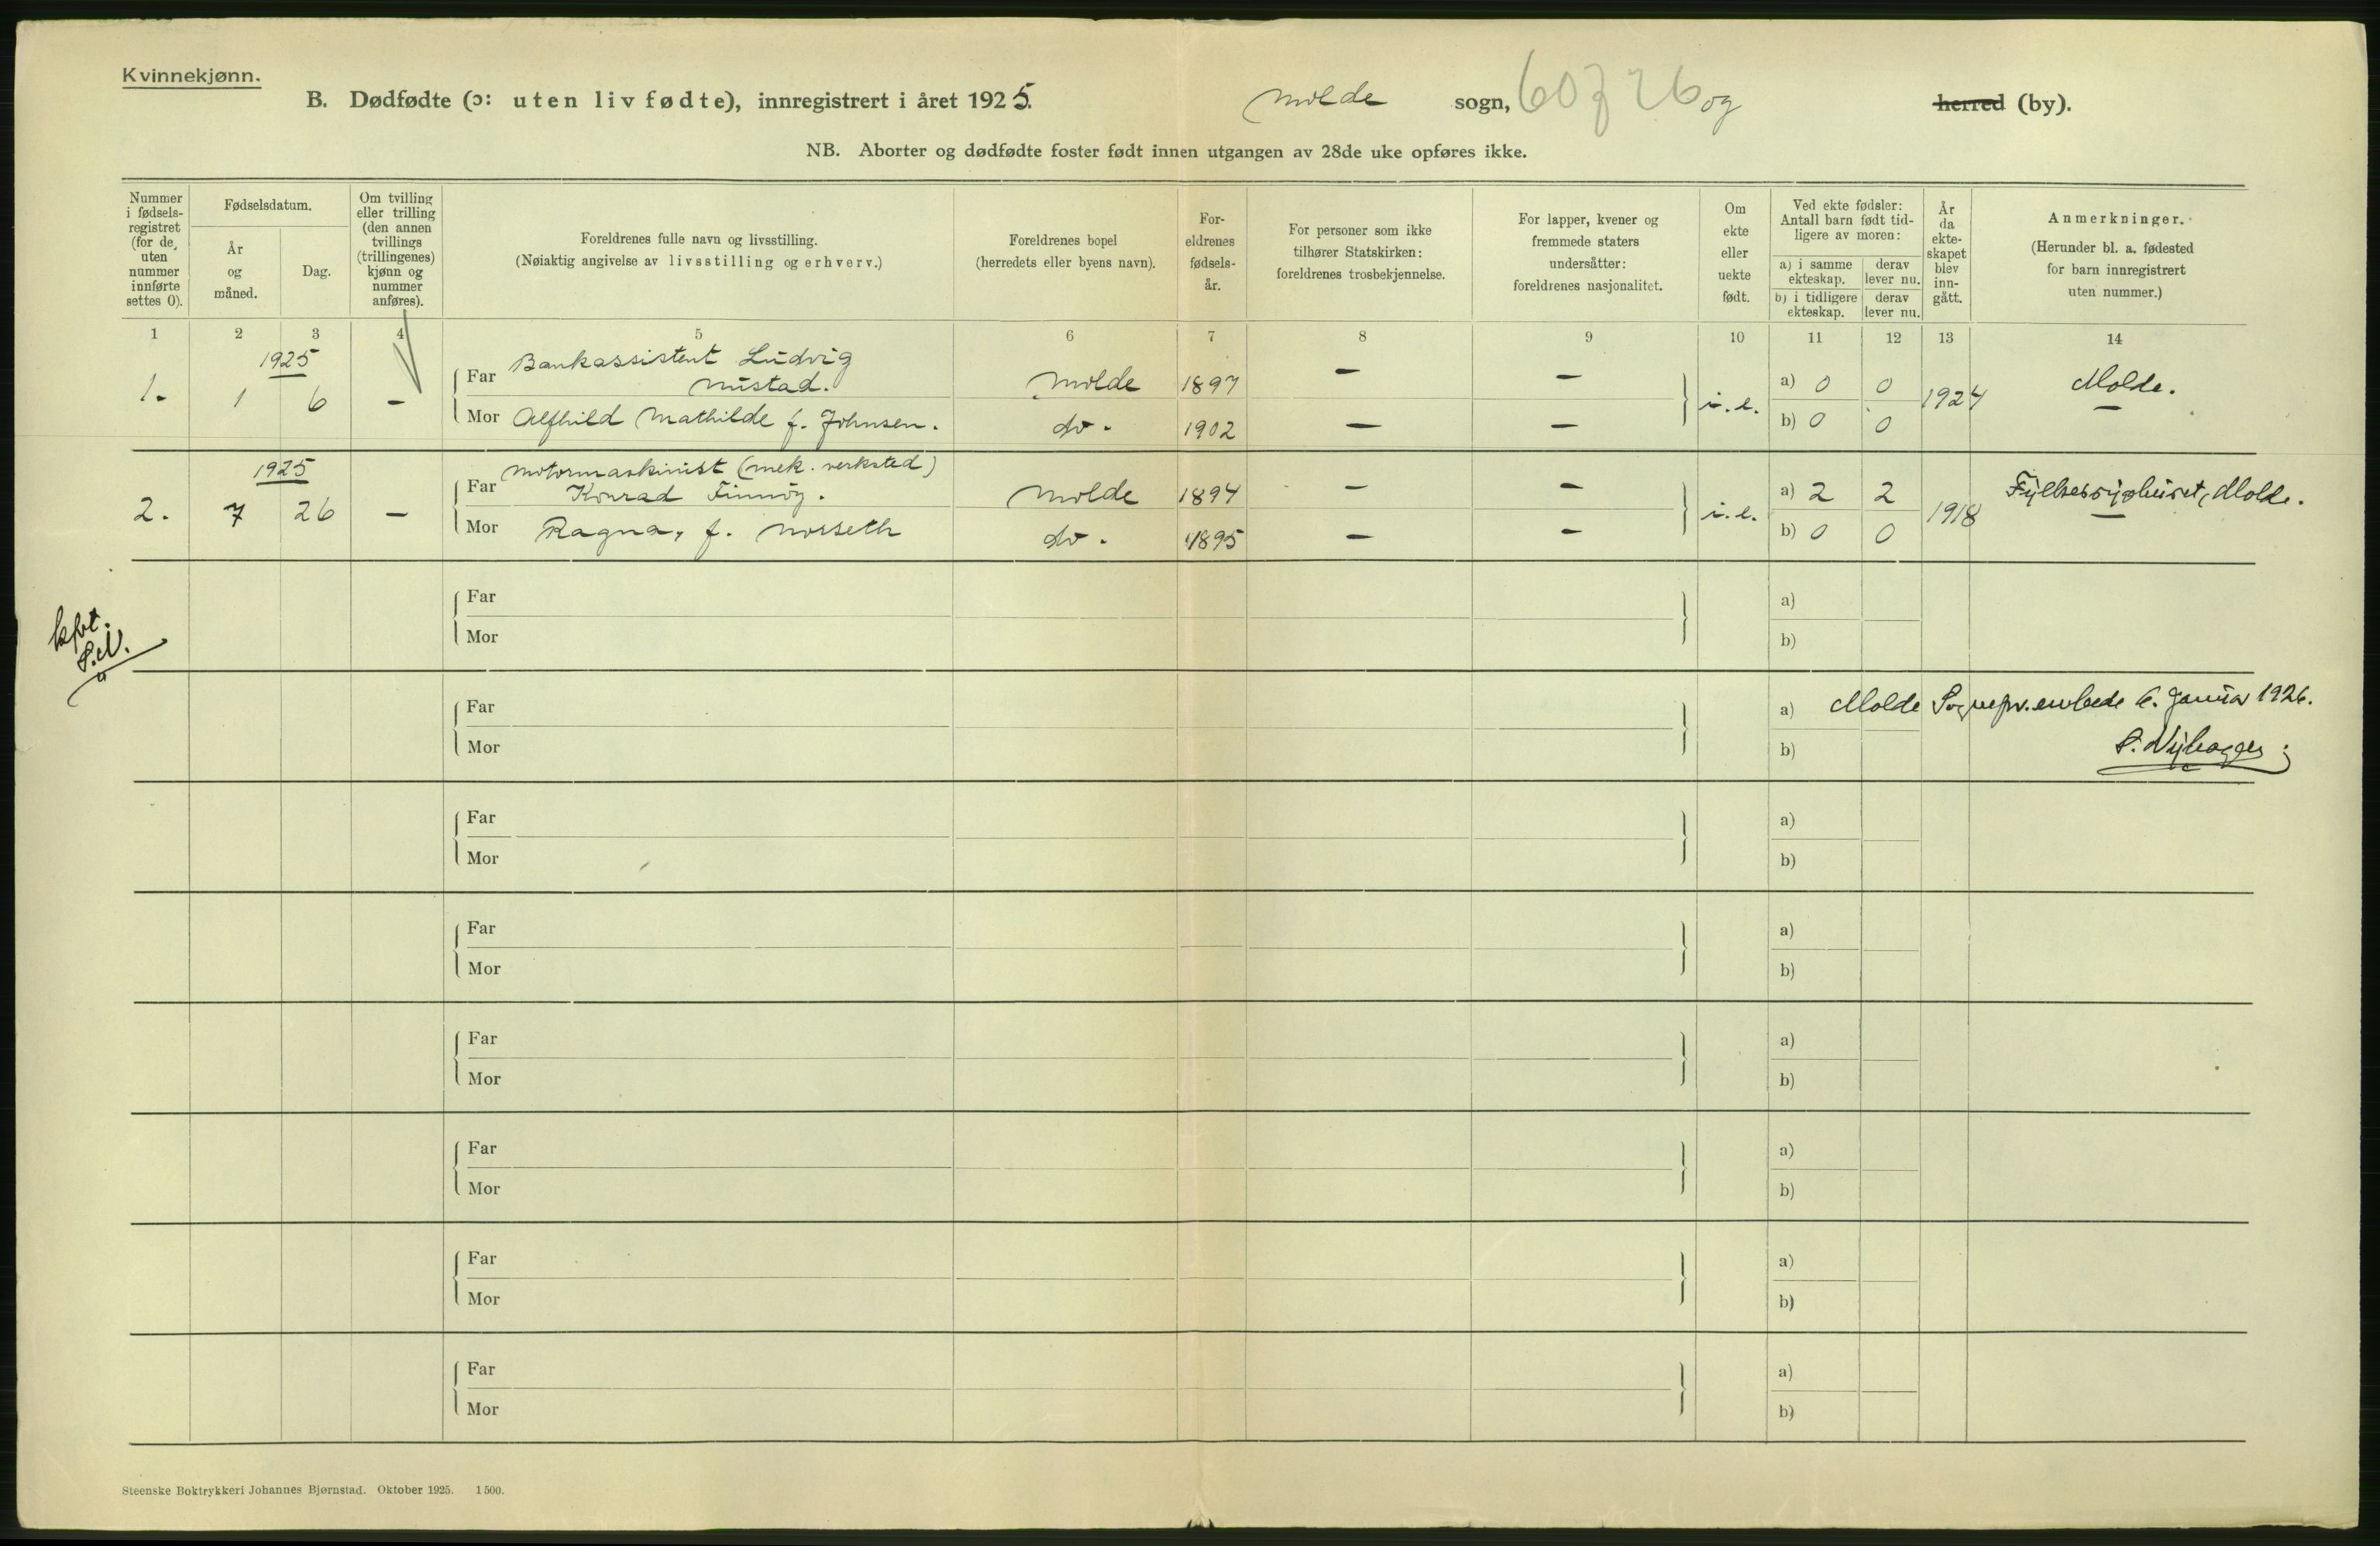 Kvinnekjønn.
B. Dødfødte (ɔ: uten liv fødte), innregistrert i året 1925. Molde sogn, og herred (by).
NB. Aborter og dødfødte foster født innen utgangen av 28de uke opføres ikke.
Nummer i fødsels- registret (for de uten nummer innførte settes 0).
Fødselsdatum.
År og måned.
Dag.
Om tvilling eller trilling (den annen tvillings (trillingenes) kjønn og nummer anføres).
Foreldrenes fulle navn og livsstilling.
(Nøiaktig angivelse av livsstilling og erhverv.)
Foreldrenes bopel
(herredets eller byens navn).
For- eldrenes fødsels- år.
For personer som ikke tilhører Statskirken: foreldrenes trosbekjennelse.
For lapper, kvener og fremmede staters undersåtter: foreldrenes nasjonalitet.
Om ekte eller uekte født.
Ved ekte fødsler: Antall barn født tid- ligere av moren:
a) i samme ekteskap.
derav lever nu.
b) i tidligere ekteskap.
derav lever nu.
År da ekte- skapet blev inn- gått.
Anmerkninger.
(Herunder bl. a. fødested for barn innregistrert uten nummer.)
1 2 3 4 5 6 7 8 9 10 11 12 13 14
1925
1. 1 6 – Far Bankassistent Ludvig
Mistad. Molde 1897 – – i. e. a) 0 0 1924 Molde.
Mor Alfhild Mathilde f. Johnsen. do. 1902 – – b) 0 0
1925
2. 7 26 – Far Motormaskinist (mek. verksted)
Konrad Finnøy. Molde 1894 – – i. e. a) 2 2 1918 Fylkessykehuset, Molde.
Mor Ragna, f. Norseth do. 1895 – – b) 0 0
Far a)
Mor b)
kfrt.
S.N.
Far a) Molde Sognepr.embede 6. Januar 1926.
Mor b)
Far a)
Mor b)
Far a)
Mor b)
Far a)
Mor b)
Far a)
Mor b)
Far a)
Mor b)
Far a)
Mor b)
Steenske Boktrykkeri Johannes Bjørnstad. Oktober 1925. 1500.